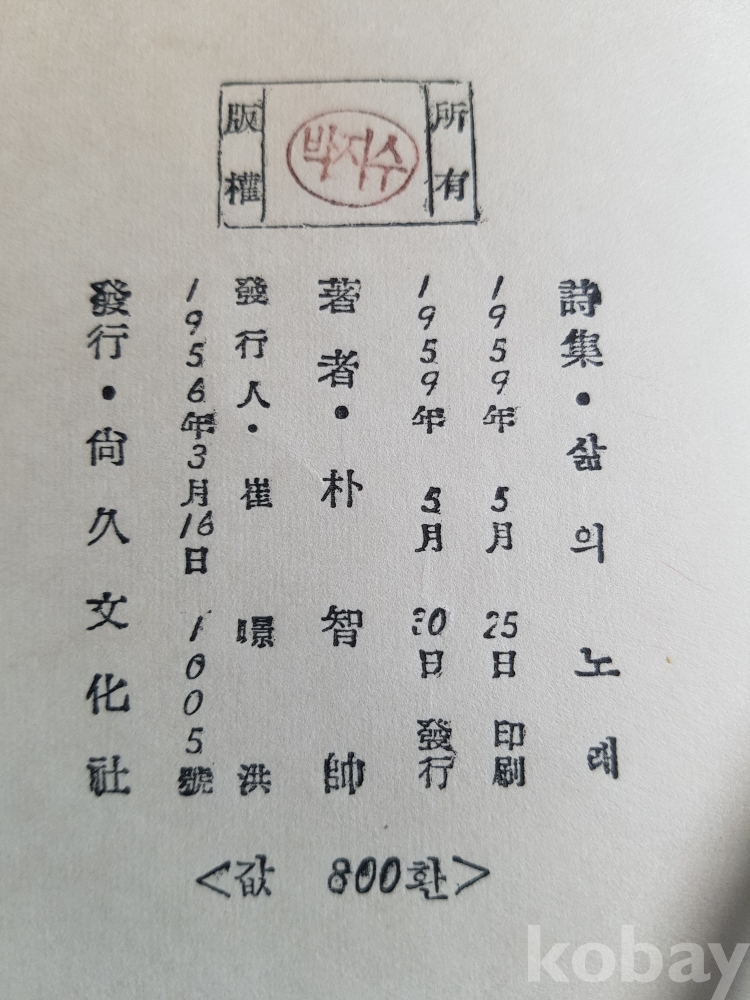 版權
박지수
所有
詩集·삶의 노래
1959年 5月 25日 印刷
1959年 5月 30日 發行
著者·朴智帥
發行人·崔暻洪
1956年3月16日 1005號
發行·尙久文化社
<값 800환>
kobay